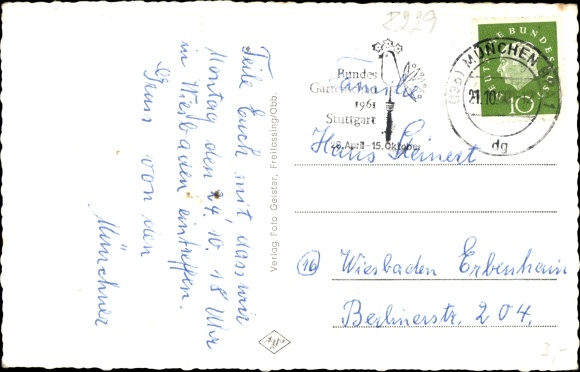 Teile Euch mit dass wir
Montag den 24.10. 18 Uhr
in Wiesbaden eintreffen.
Gruss von den
Münchner
Verlag Foto Geister, Freilassing/Obb.
2229
Bundes
Gartenschau
1961
Stuttgart
28. April-15. Oktober
MÜNCHEN
21.10.
dg
DEUTSCHE BUNDESPOST
10
Familie
Hans Steinert
(16) Wiesbaden Erbenheim
Berlinerstr. 204.
3,-